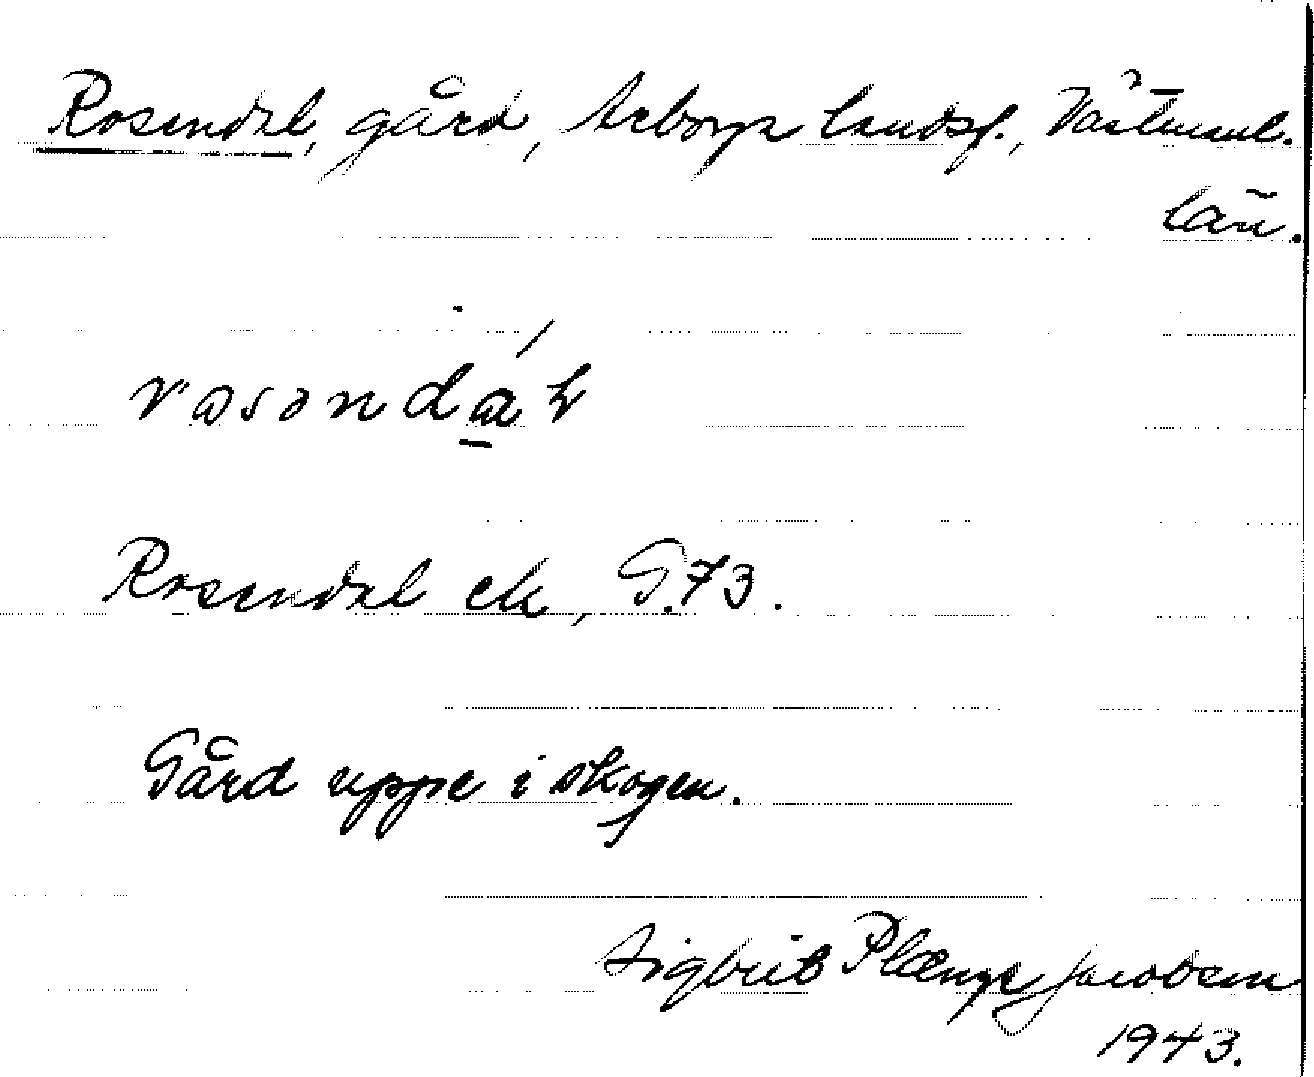 Rosendal, gård, Arboga landsf., Västmanl.
län.
rosəndál
Rosendal ek, G.73.
Gård uppe i skogen.
Sigbrit Plænge Jacobson
1943.